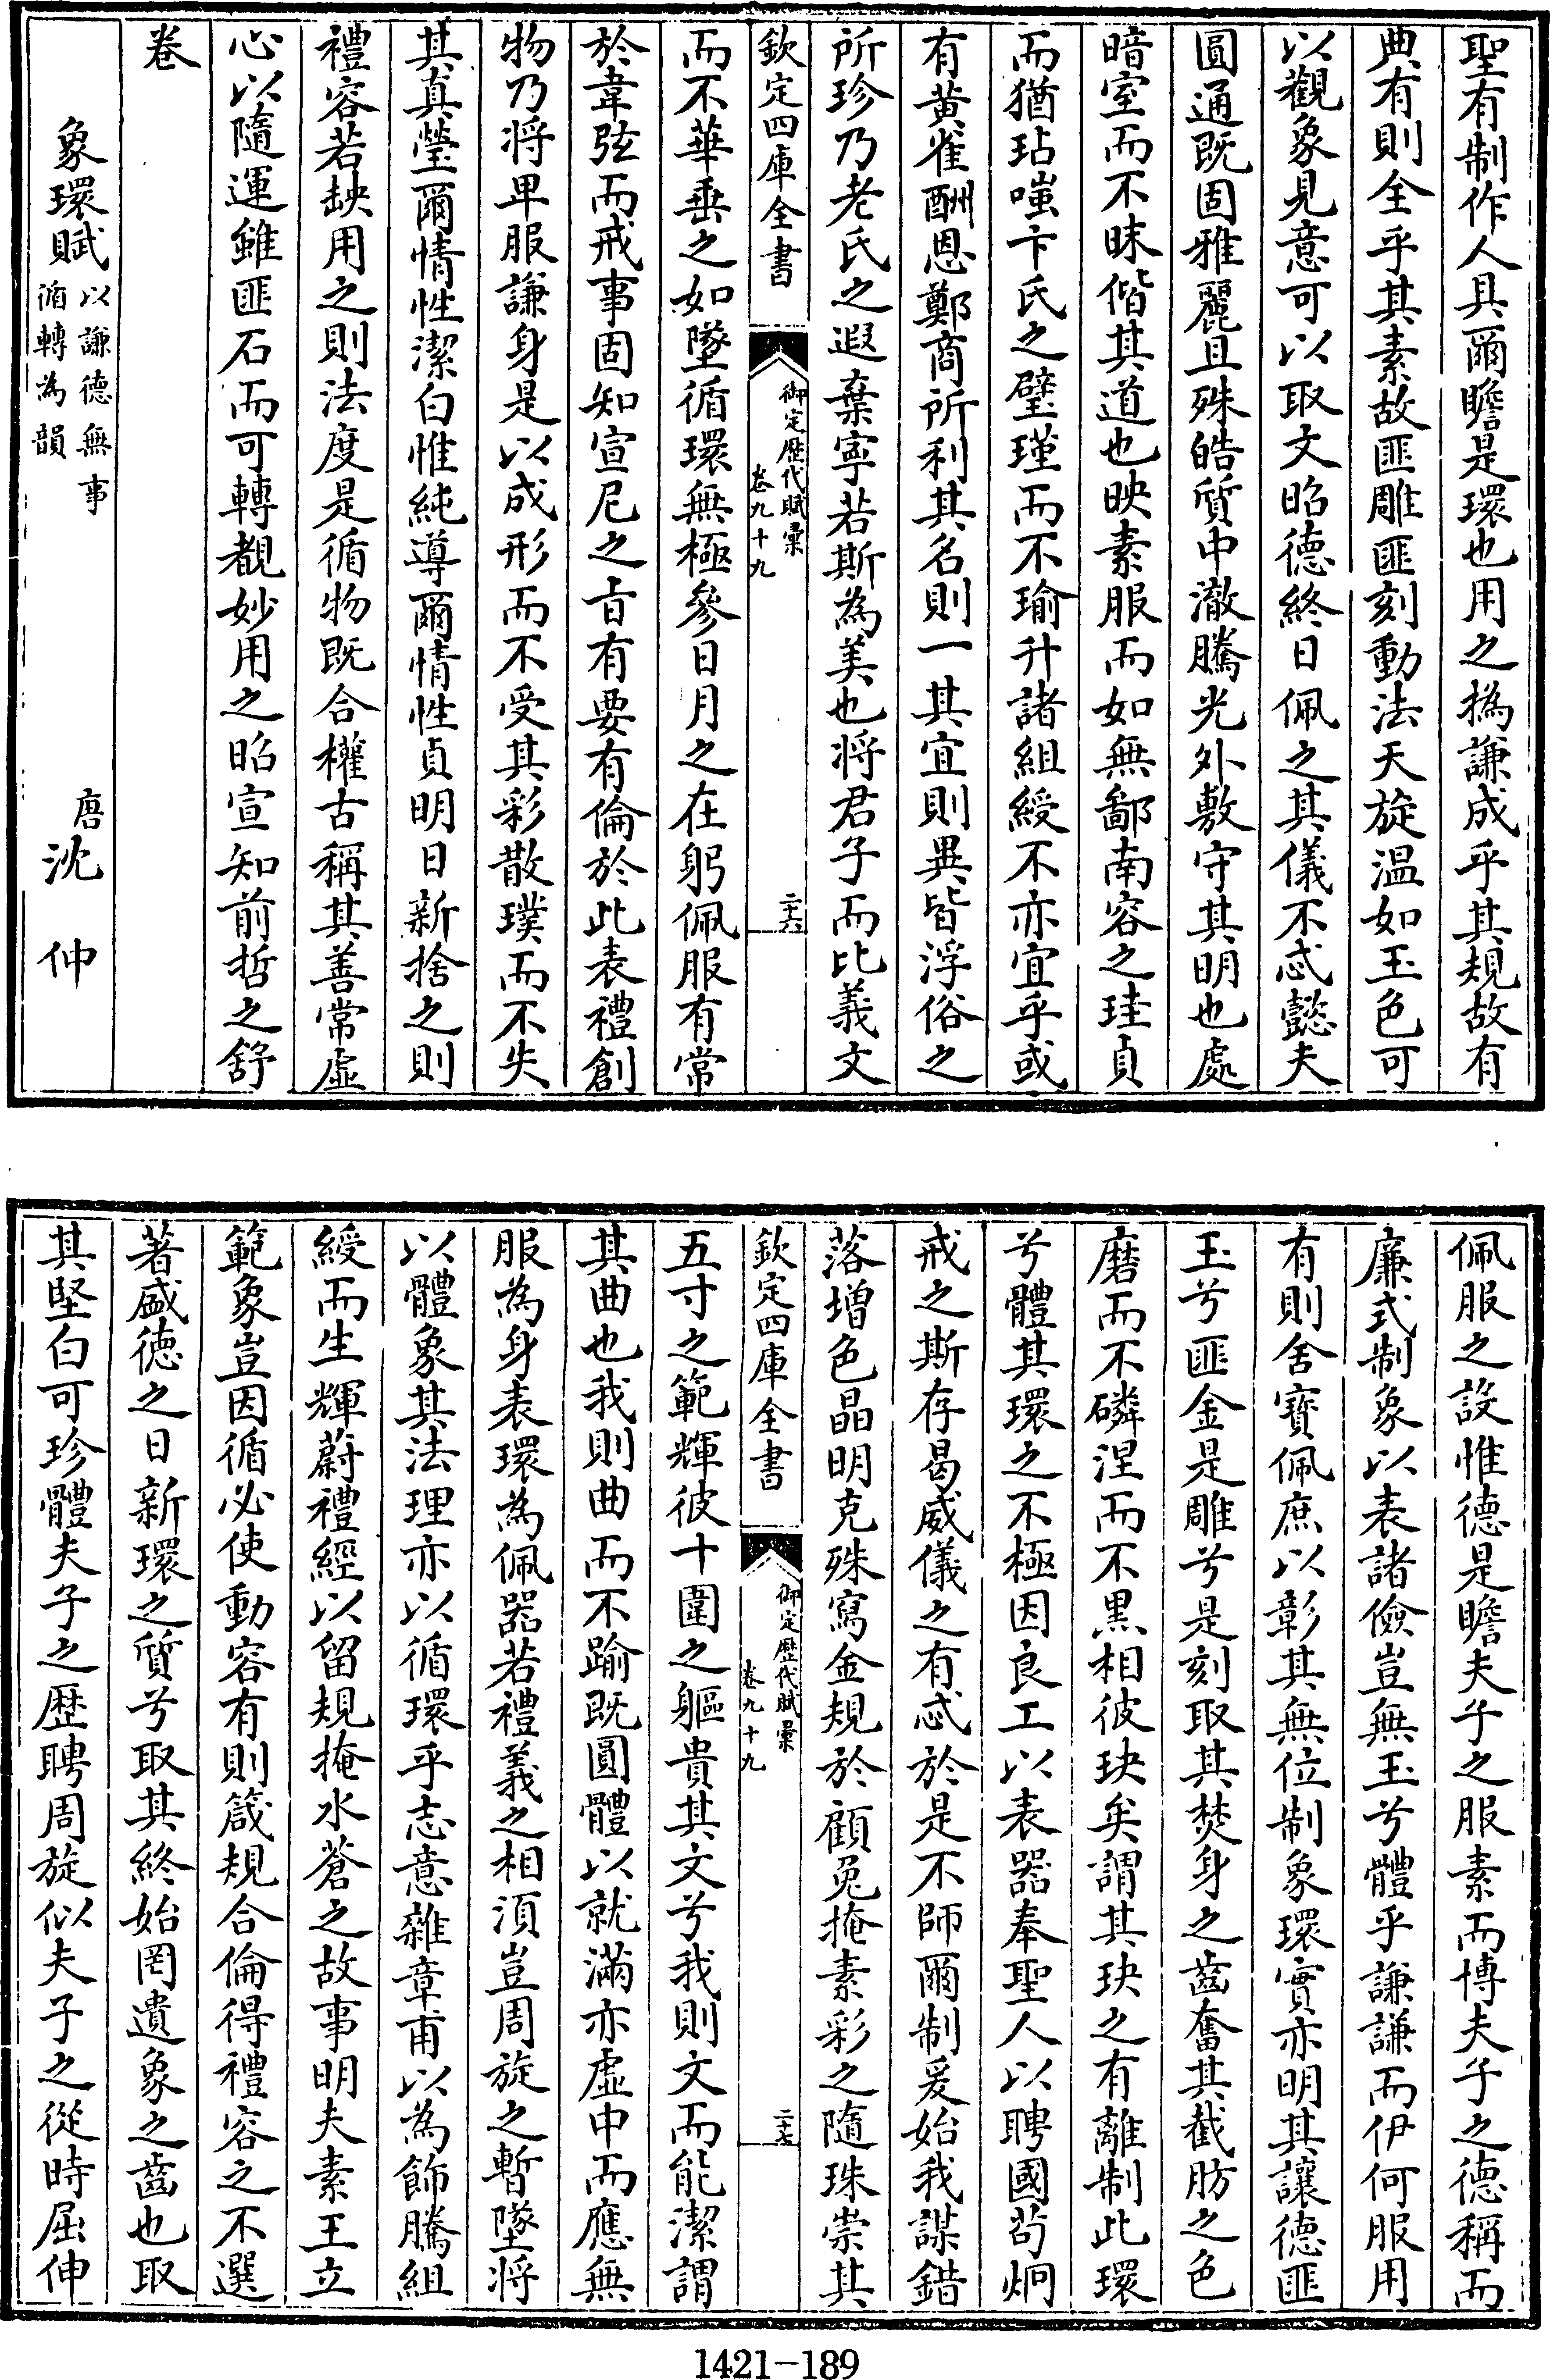 聖有制作人具爾瞻是環也用之撝謙成乎其規故有
典有則全乎其素故匪雕匪刻動法天旋温如玉色可
以觀象見意可以取文昭德終日佩之其儀不忒懿夫
圓通既固雅麗且殊皓質中澈騰光外敷守其明也處
暗室而不昧偕其道也映素服而如無鄙南容之珪貞
而猶玷嗤卞氏之璧瑾而不瑜升諸組綬不亦宜乎或
有黄雀酬恩鄭商所利其名則一其宜則異皆浮俗之
所珍乃老氏之遐棄寧若斯為美也将君子而比義文
欽定四庫全書
御定歷代賦彙
卷九十九
二十六
而不華垂之如墜循環無極參日月之在躬佩服有常
於韋弦而戒事固知宣尼之㫖有要有倫於此表禮創
物乃将卑服謙身是以成形而不受其彩散璞而不失
其真瑩爾情性潔白惟純導爾情性貞明日新捨之則
禮容若缺用之則法度是循物既合權古稱其善常虛
心以隨運雖匪石而可轉覩妙用之昭宣知前哲之舒
卷
象環賦以謙德無事
循轉為韻
唐沈仲
佩服之設惟德是瞻夫子之服素而博夫子之德稱而
廉式制象以表諸儉豈無玉兮體乎謙謙而伊何服用
有則舍寶佩庶以彰其無位制象環實亦明其讓德匪
玉兮匪金是雕兮是刻取其焚身之齒奮其截肪之色
磨而不磷涅而不黒相彼玦矣謂其玦之有離制此環
兮體其環之不極因良工以表器奉聖人以聘國茍炯
戒之斯存曷威儀之有忒於是不師爾制爰始我謀錯
落増色晶明克殊寫金規於顧兔掩素彩之隨珠崇其
欽定四庫全書
御定歷代賦彙
卷九十九
二十七
五寸之範輝彼十圍之軀貴其文兮我則文而能潔謂
其曲也我則曲而不踰既圓體以就滿亦虛中而應無
服為身表環為佩器若禮義之相須豈周旋之暫墜将
以體象其法理亦以循環乎志意雜章甫以為飾騰組
綬而生輝蔚禮經以留規掩水蒼之故事明夫素王立
範象豈因循必使動容有則箴規合倫得禮容之不選
著盛德之日新環之質兮取其終始罔遺象之齒也取
其堅白可珍體夫子之歷聘周旋似夫子之從時屈伸
1421-189